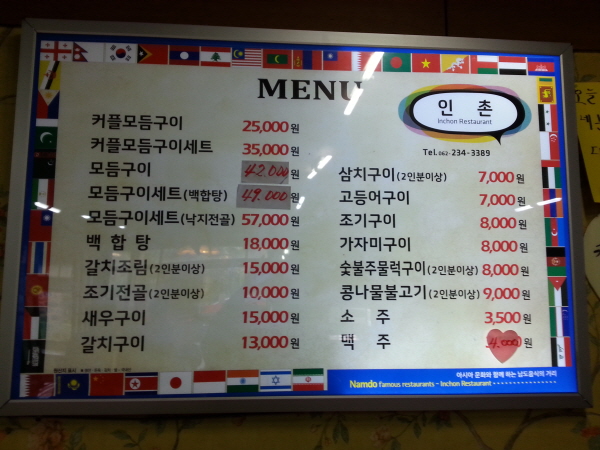 MENU
인 촌
Inchon Restaurant
Tel.062-234-3389
커플모듬구이 25,000원
커플모듬구이세트 35,000원
모듬구이 42.000원
모듬구이세트(백합탕) 49.000원
모듬구이세트(낙지전골) 57,000원
백 합 탕 18,000원
갈치조림(2인분이상) 15,000원
조기전골(2인분이상) 10,000원
새우구이 15,000원
갈치구이 13,000원
삼치구이(2인분이상) 7,000원
고등어구이 7,000원
조기구이 8,000원
가자미구이 8,000원
숯불주물럭구이(2인분이상) 8,000원
콩나물불고기(2인분이상) 9,000원
소 주 3,500원
맥 주 4.000원
아시아 문화와 함께 하는 남도음식의 거리
Namdo famous restaurants - Inchon Restaurant